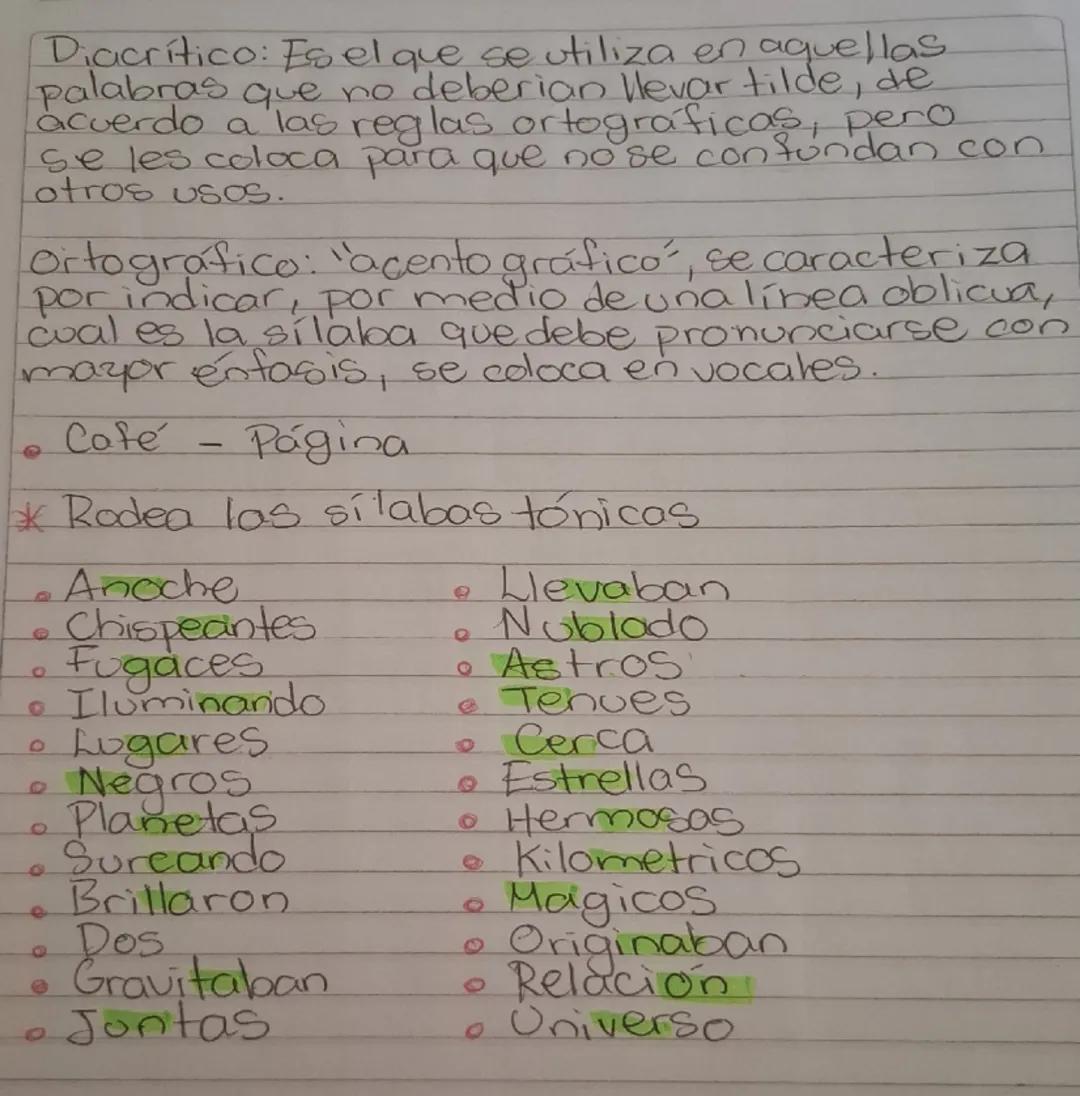 Diacrítico: Es el que se utiliza en aquellas
palabras que no deberian llevar tilde, de
acuerdo a las reglas ortográficas, pero
se les coloca para que no se confundan con
otros usos.
Ortográfico: "acento gráfico", se caracteriza
por indicar, por medio de una línea oblicua,
cual es la sílaba que debe pronunciarse con
mayor énfasis, se coloca en vocales.
• Café - Página
* Rodea las sílabas tónicas
• Anoche
• Chispeantes
• Fugaces
• Iluminando
• Lugares
• Negros
• Planetas
• Sureando
• Brillaron
• Dos
• Gravitaban
• Juntas
• Llevaban
• Nublado
• Astros
• Tenues
• Cerca
• Estrellas
• Hermosas
• Kilometricos
• Mágicos
• Originaban
• Relación
• Universo